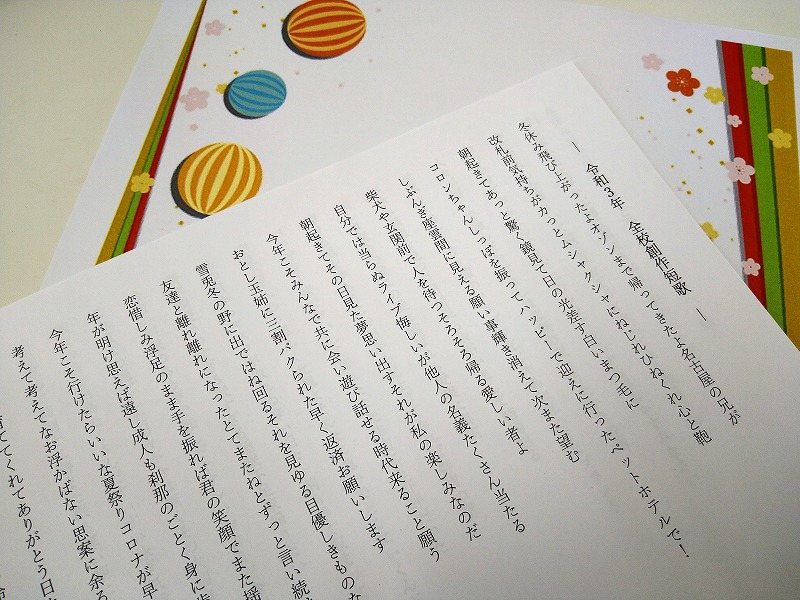 ― 令和3年 全校創作短歌 ―
冬休み飛び上がったよオゾンまで帰ってきたよ名古屋の兄が
改札前気持ちがカっとムシャクシャにねじれひねくれ心と鞄
朝起きてあっと驚く鏡見て日の光差す白いまつ毛に
コロンちゃんしっぽを振ってハッピーで迎えに行ったペットホテルで!
しぶんぎ座雲間に見える願い事輝き消えて次また望む
柴犬や玄関前で人を待つそろそろ帰る愛しい者よ
自分では当らぬライブ悔しいが他人の名義たくさん当たる
朝起きてその日見た夢思い出すそれが私の楽しみなのだ
今年こそみんなで共に会い遊び話せる時代来ること願う
おとし玉姉に三割パクられた早く返済お願いします
雪兎冬の野に出ではね回るそれを見ゆる目優しきものな
友達と離れ離れになったとてまたねとずっと言い続
恋惜しみ浮足のまま手を振れば君の笑顔でまた揺
年が明け思えば遠し成人も刹那のごとく身に
今年こそ行けたらいいな夏祭りコロナが早
考えて考えてなお浮かばない思案に余る
育ててくれてありがとう日